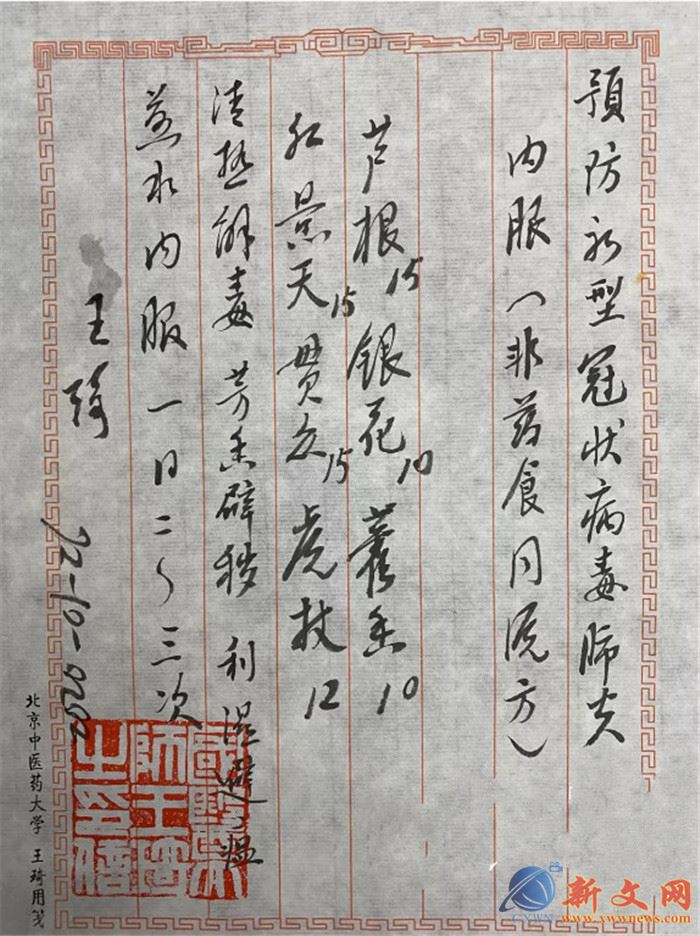 預防新型冠状病毒肺炎
内服（非药食同源方）
芦根15 银花10 藿香10
红景天15 贯众15 虎杖12
清热解毒 芳香辟秽 利湿避瘟
煎水内服 一日二～三次
王琦
国医大
师王琦
之印信
北京中医药大学 王琦用笺
新文网
www.ywwnews.com